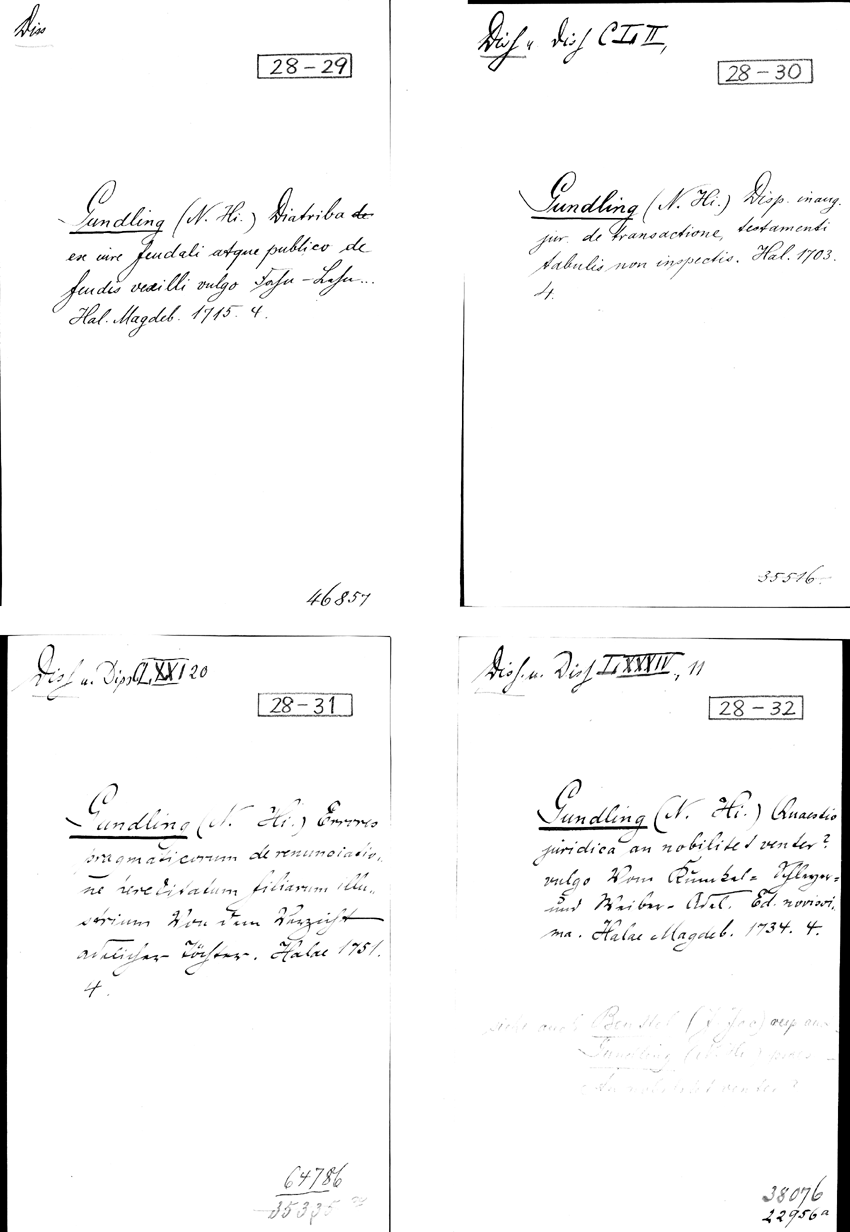 Diss
28-29
Gundling (N. Hi.) Diatriba de
ex iure feudali atque publico de
feudis vexilli vulgo Fahn-Lehn...
Hal. Magdeb. 1715. 4.
46857
Diss u Diss C L II,
28-30
Gundling (N. Hi.) Disp. inaug.
jur. de transactione, testamenti
tabulis non inspectis. Hal. 1703.
4.
35516
Diss u. Diss LXXI 20
28-31
Gundling (N. Hi.) Errores
pragmaticorum de renunciatio-
ne hereditatum filiarum illu-
strium Von dem Verzicht
adelicher Töchter. Halae 1751.
4.
64786
35335
Diss. u. Diss LXXXIV, 11
28-32
Gundling (N. Hi.) Quaestio
juridica an nobilitet venter?
vulgo Vom Kunkel- Schleyer-
und Weiber-Adel. Ed. novissi-
ma. Halae Magdeb. 1734. 4.
siehe auch
Gundling (N. Hi.)
An nobilitet venter?
38076
22956a